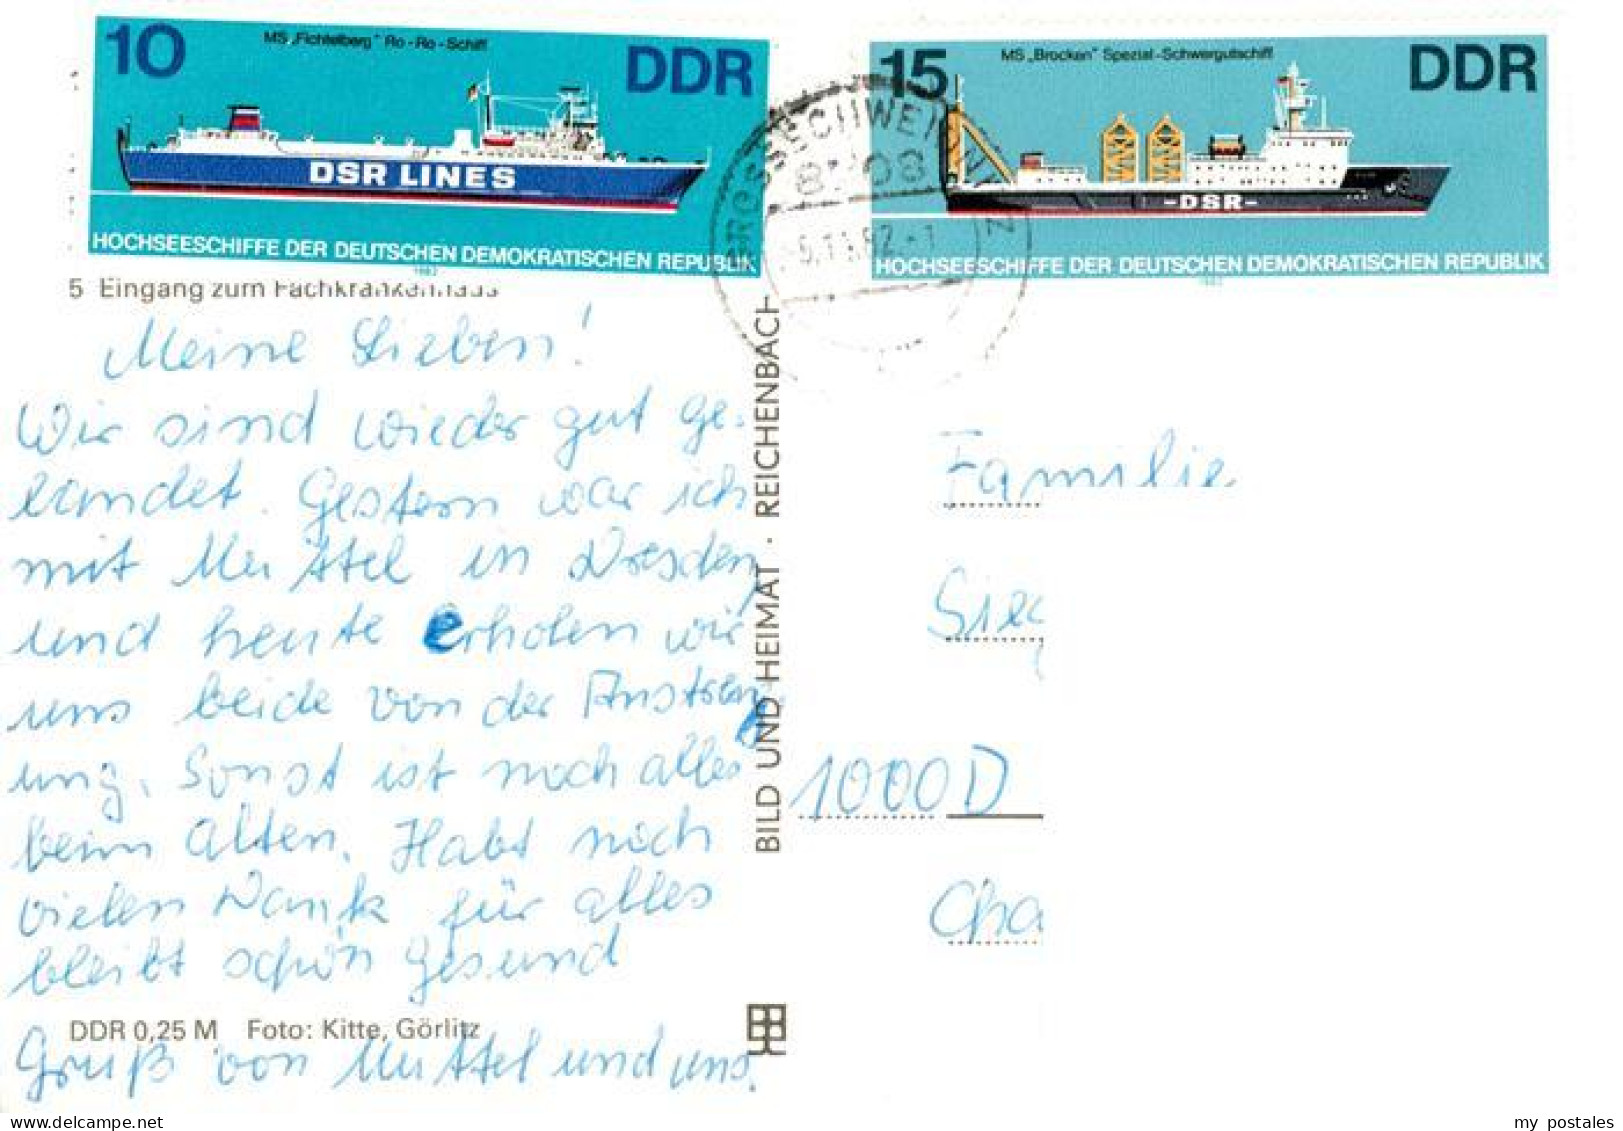 10 MS „Fichtelberg" Ro-Ro-Schiff DDR
DSR LINES
HOCHSEESCHIFFE DER DEUTSCHEN DEMOKRATISCHEN REPUBLIK
1982
15 MS „Brocken" Spezial-Schwergutschiff DDR
-DSR-
HOCHSEESCHIFFE DER DEUTSCHEN DEMOKRATISCHEN REPUBLIK
GROSSSCHWEIDNITZ
5 Eingang zum Fachkrankenhaus
Meine Lieben!
Wir sind wieder gut ge-
landet. Gestern war ich
mit Muttel in Dresden,
und heute erholen wir
uns beide von der Anstreng-
ung. Sonst ist noch alles
beim Alten. Habt noch
vielen Dank für alles
bleibt schön gesund
Gruß von Muttel und uns.
DDR 0,25 M Foto: Kitte, Görlitz
BILD UND HEIMAT · REICHENBACH
Familie
Sieg
1000 D
Cha
delcampe.net
my_postales